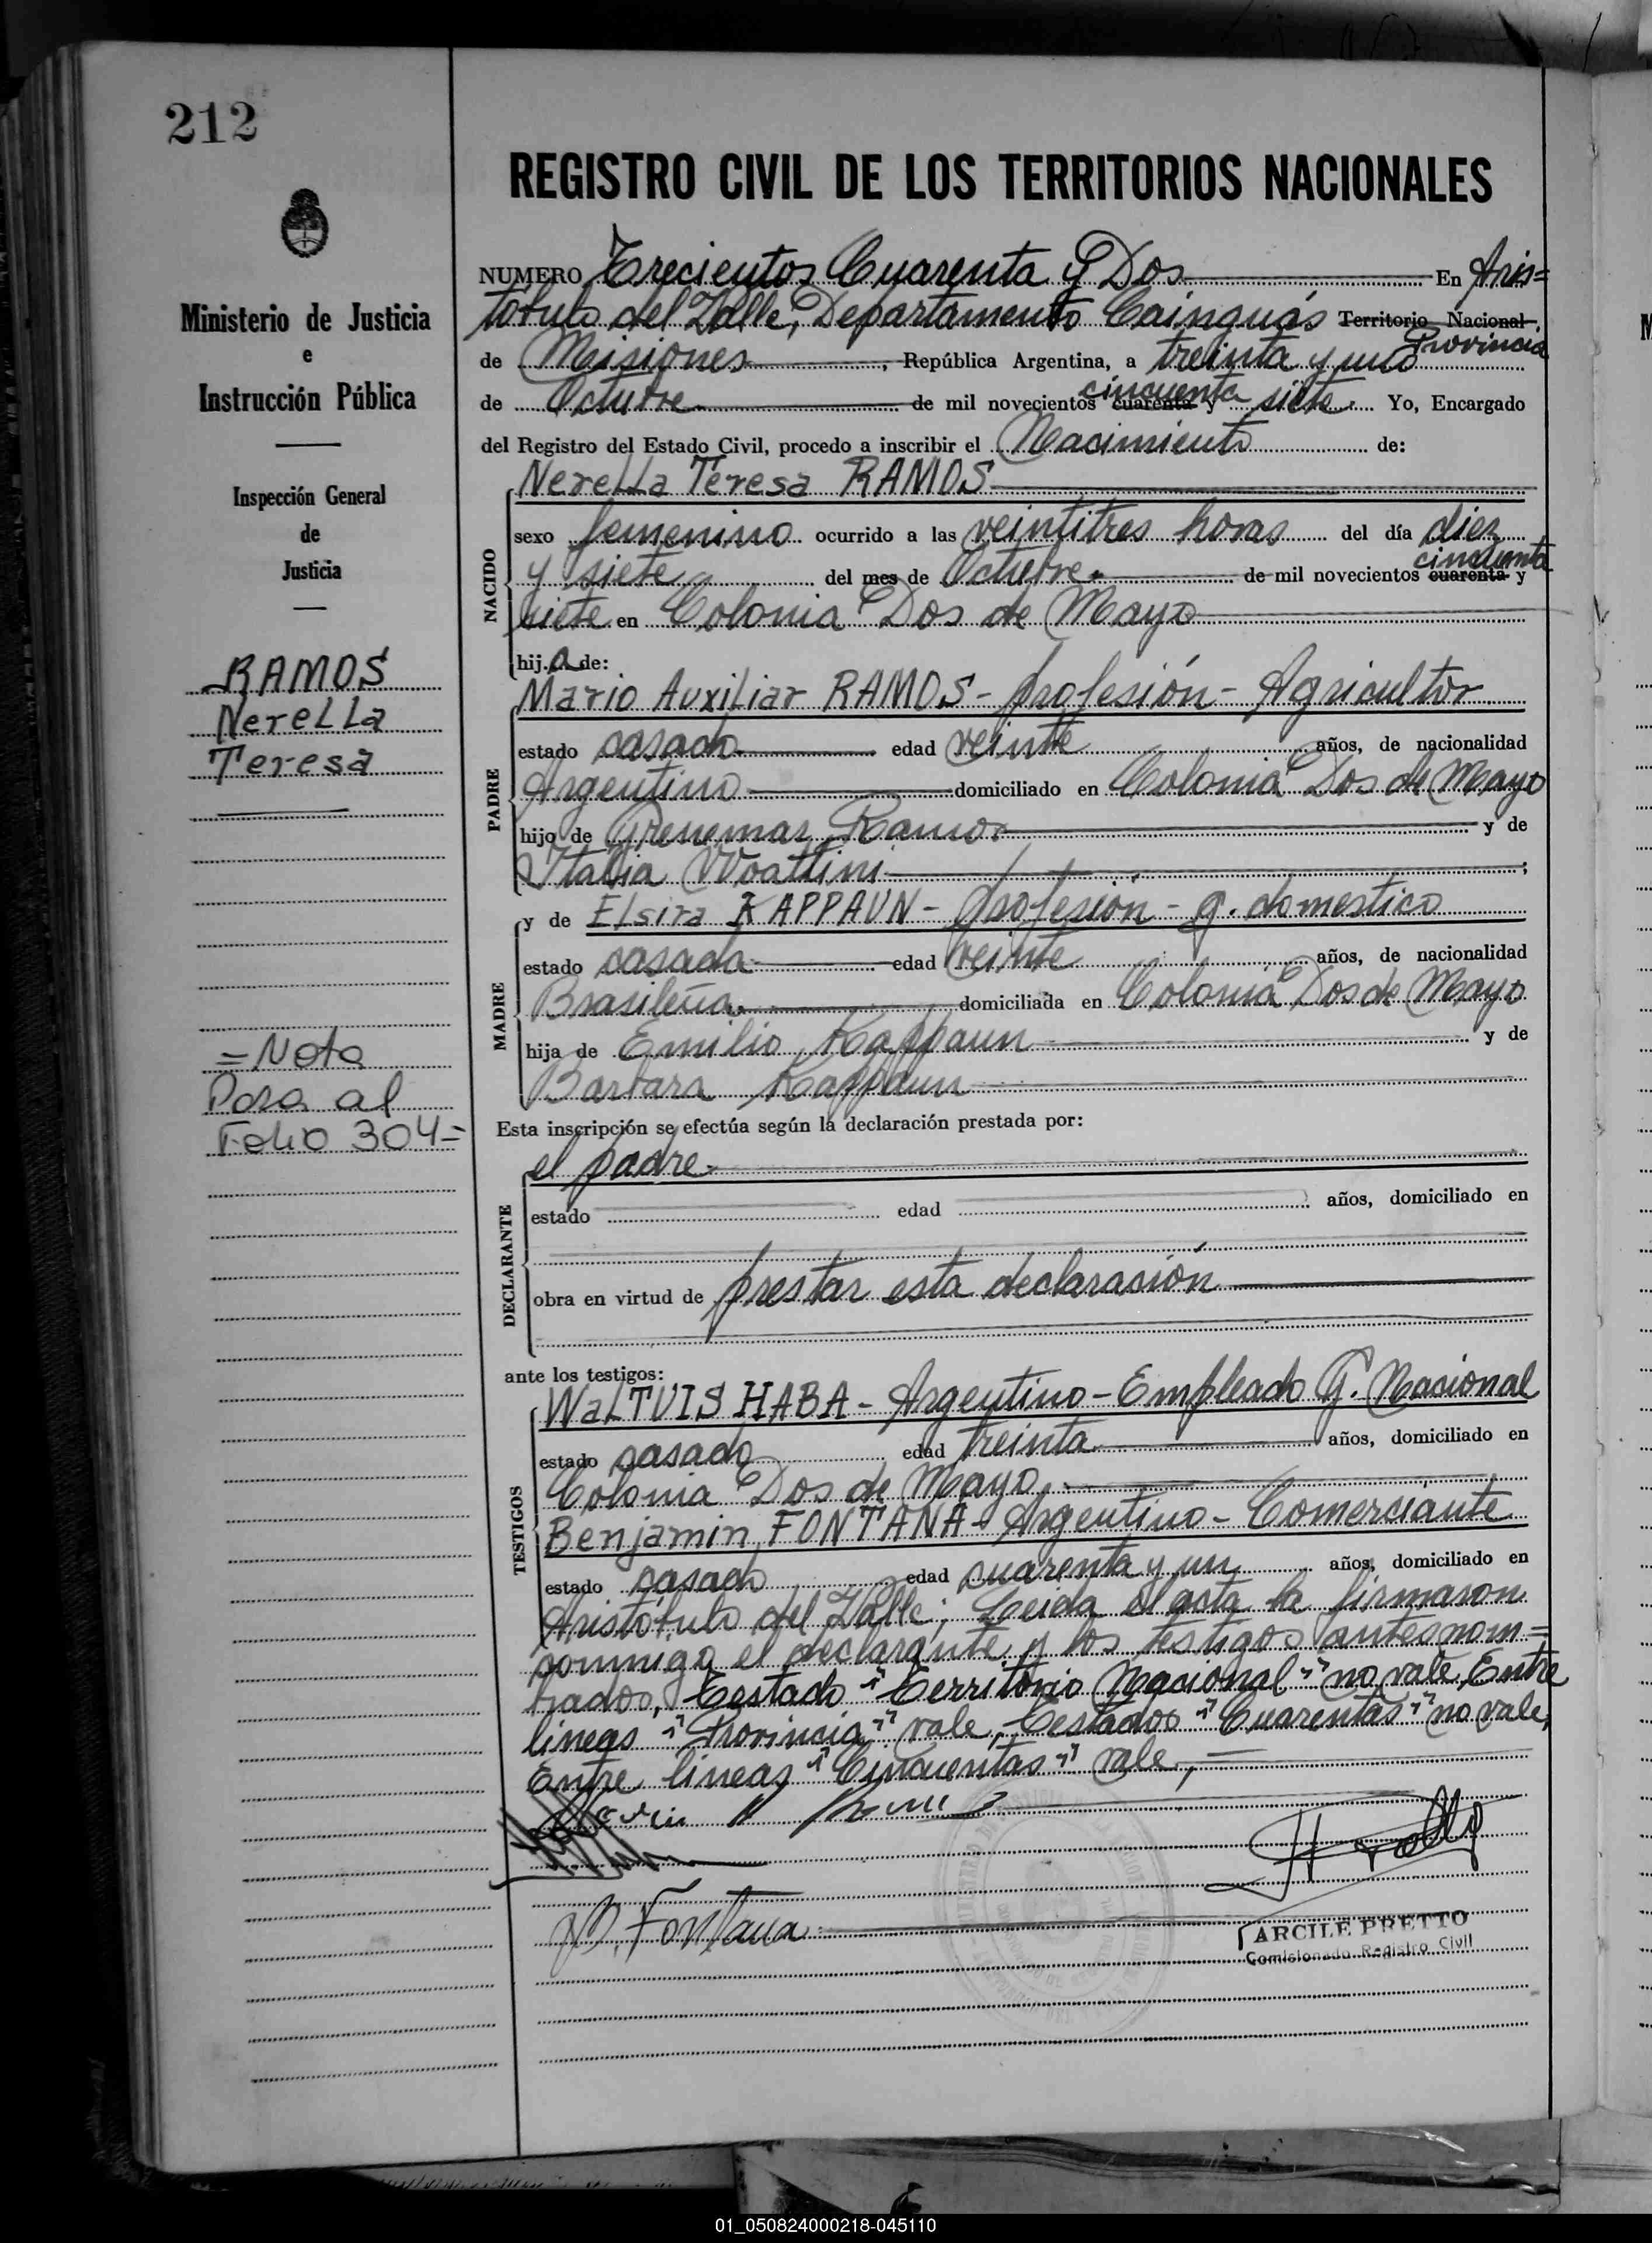 212
REGISTRO CIVIL DE LOS TERRITORIOS NACIONALES
Ministerio de Justicia
e
Instrucción Pública
Inspección General
de
Justicia
RAMOS
Nerella
Teresa
=Nota
Pasa al
Folio 304=
NUMERO Trecientos Cuarenta y Dos En Aris=
tóbulo del Valle, Departamento Cainguás Territorio Nacional
Provincia
de Misiones, República Argentina, a treinta y uno
de Octubre de mil novecientos cuarenta cincuenta y siete. Yo, Encargado
del Registro del Estado Civil, procedo a inscribir el Nacimiento de:
NACIDO
Nerella Teresa RAMOS
sexo femenino ocurrido a las veintitres horas del día diez
y siete del mes de Octubre de mil novecientos cuarenta cincuenta y
siete en Colonia Dos de Mayo
hija de:
PADRE
Mario Auxiliar RAMOS - profesión - Agricultor
estado casado edad veinte años, de nacionalidad
Argentino domiciliado en Colonia Dos de Mayo
hijo de Ramos y de
Italia
MADRE
y de Elsira KAPPAUN - profesión - q. domestico
estado casada edad veinte años, de nacionalidad
Brasileña domiciliada en Colonia Dos de Mayo
hija de Emilio Kappaun y de
Barbara Kappaun
Esta inscripción se efectúa según la declaración prestada por:
DECLARANTE
el padre
estado edad años, domiciliado en
obra en virtud de prestar esta declaración
ante los testigos:
TESTIGOS
WaLTUIS HABA - Argentino - Empleado G. Nacional
estado casado edad treinta años, domiciliado en
Colonia Dos de Mayo
Benjamin FONTANA - Argentino - Comerciante
estado casado edad cuarenta y un años, domiciliado en
Aristóbulo del Valle; Leida el acta la firmaron
conmigo el declarante y los testigos antes nom=
brados, Testado "Territorio Nacional" no vale, Entre
lineas "Provincia" vale, Testados "Cuarentas" no vale,
Entre lineas "Cincuentas" vale, =
B. Fontana
ARCILE PRETTO
Comisionado Registro Civil
01_050824000218-045110